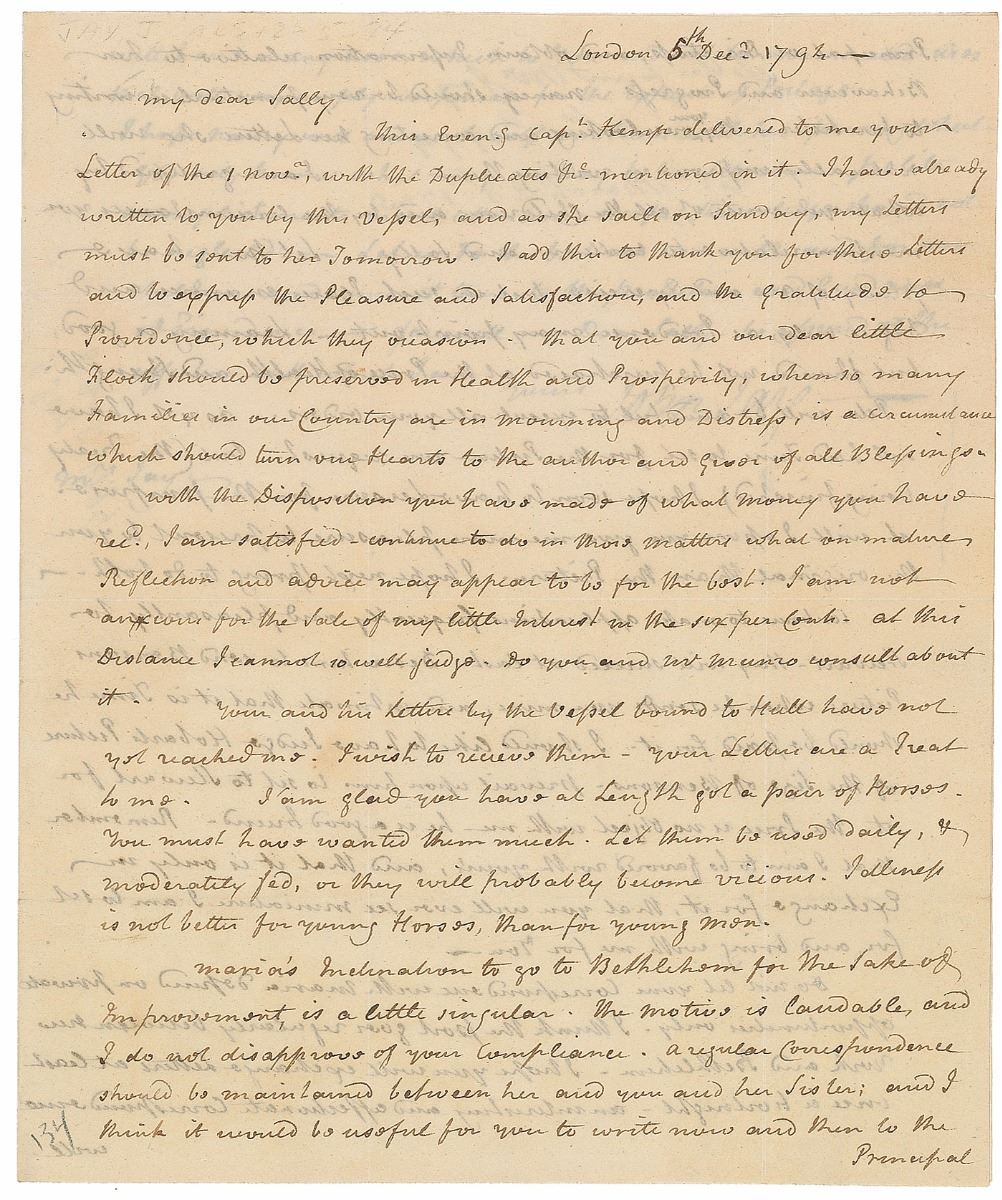 London 5th Decr. 1794 —
my dear Sally
this Eveng. Capt. Kemp delivered to me your
Letter of the 1 Novr., with the Duplicates &c. mentioned in it. I have already
written to you by this Vessel, and as she sails on Sunday, my Letters
must be sent to her Tomorrow. I add this to thank you for these Letters
and to express the Pleasure and Satisfaction, and the Gratitude to
Providence, which they occasion. That you and our dear little
Flock should be preserved in Health and Prosperity, when so many
Families in our Country are in mourning and Distress, is a circumstance
which should turn our Hearts to the author and Giver of all Blessings.
with the Disposition you have made of what money you have
recd., I am satisfied - continue to do in those matters what on mature
Reflection and advice may appear to be for the best. I am not
anxious for the Sale of my little Interest in the six per Cents - at this
Distance I cannot so well judge. Do you and mr Munro consult about
it. Your and his Letters by the Vessel bound to Hull have not
yet reached me. I wish to recieve them - your Letters are a Treat
to me. I am glad you have at Length got a pair of Horses.
You must have wanted them much. Let them be used daily, &
moderately fed, or they will probably become vicious. Idleness
is not better for young Horses, than for young men.
Maria's Inclination to go to Bethlehem for the Sake of
Improvement, is a little singular. The motive is laudable, and
I do not disapprove of your Compliance. a regular Correspondence
should be maintained between her and you and her Sister; and I
think it would be useful for you to write now and then to the
Principal
134